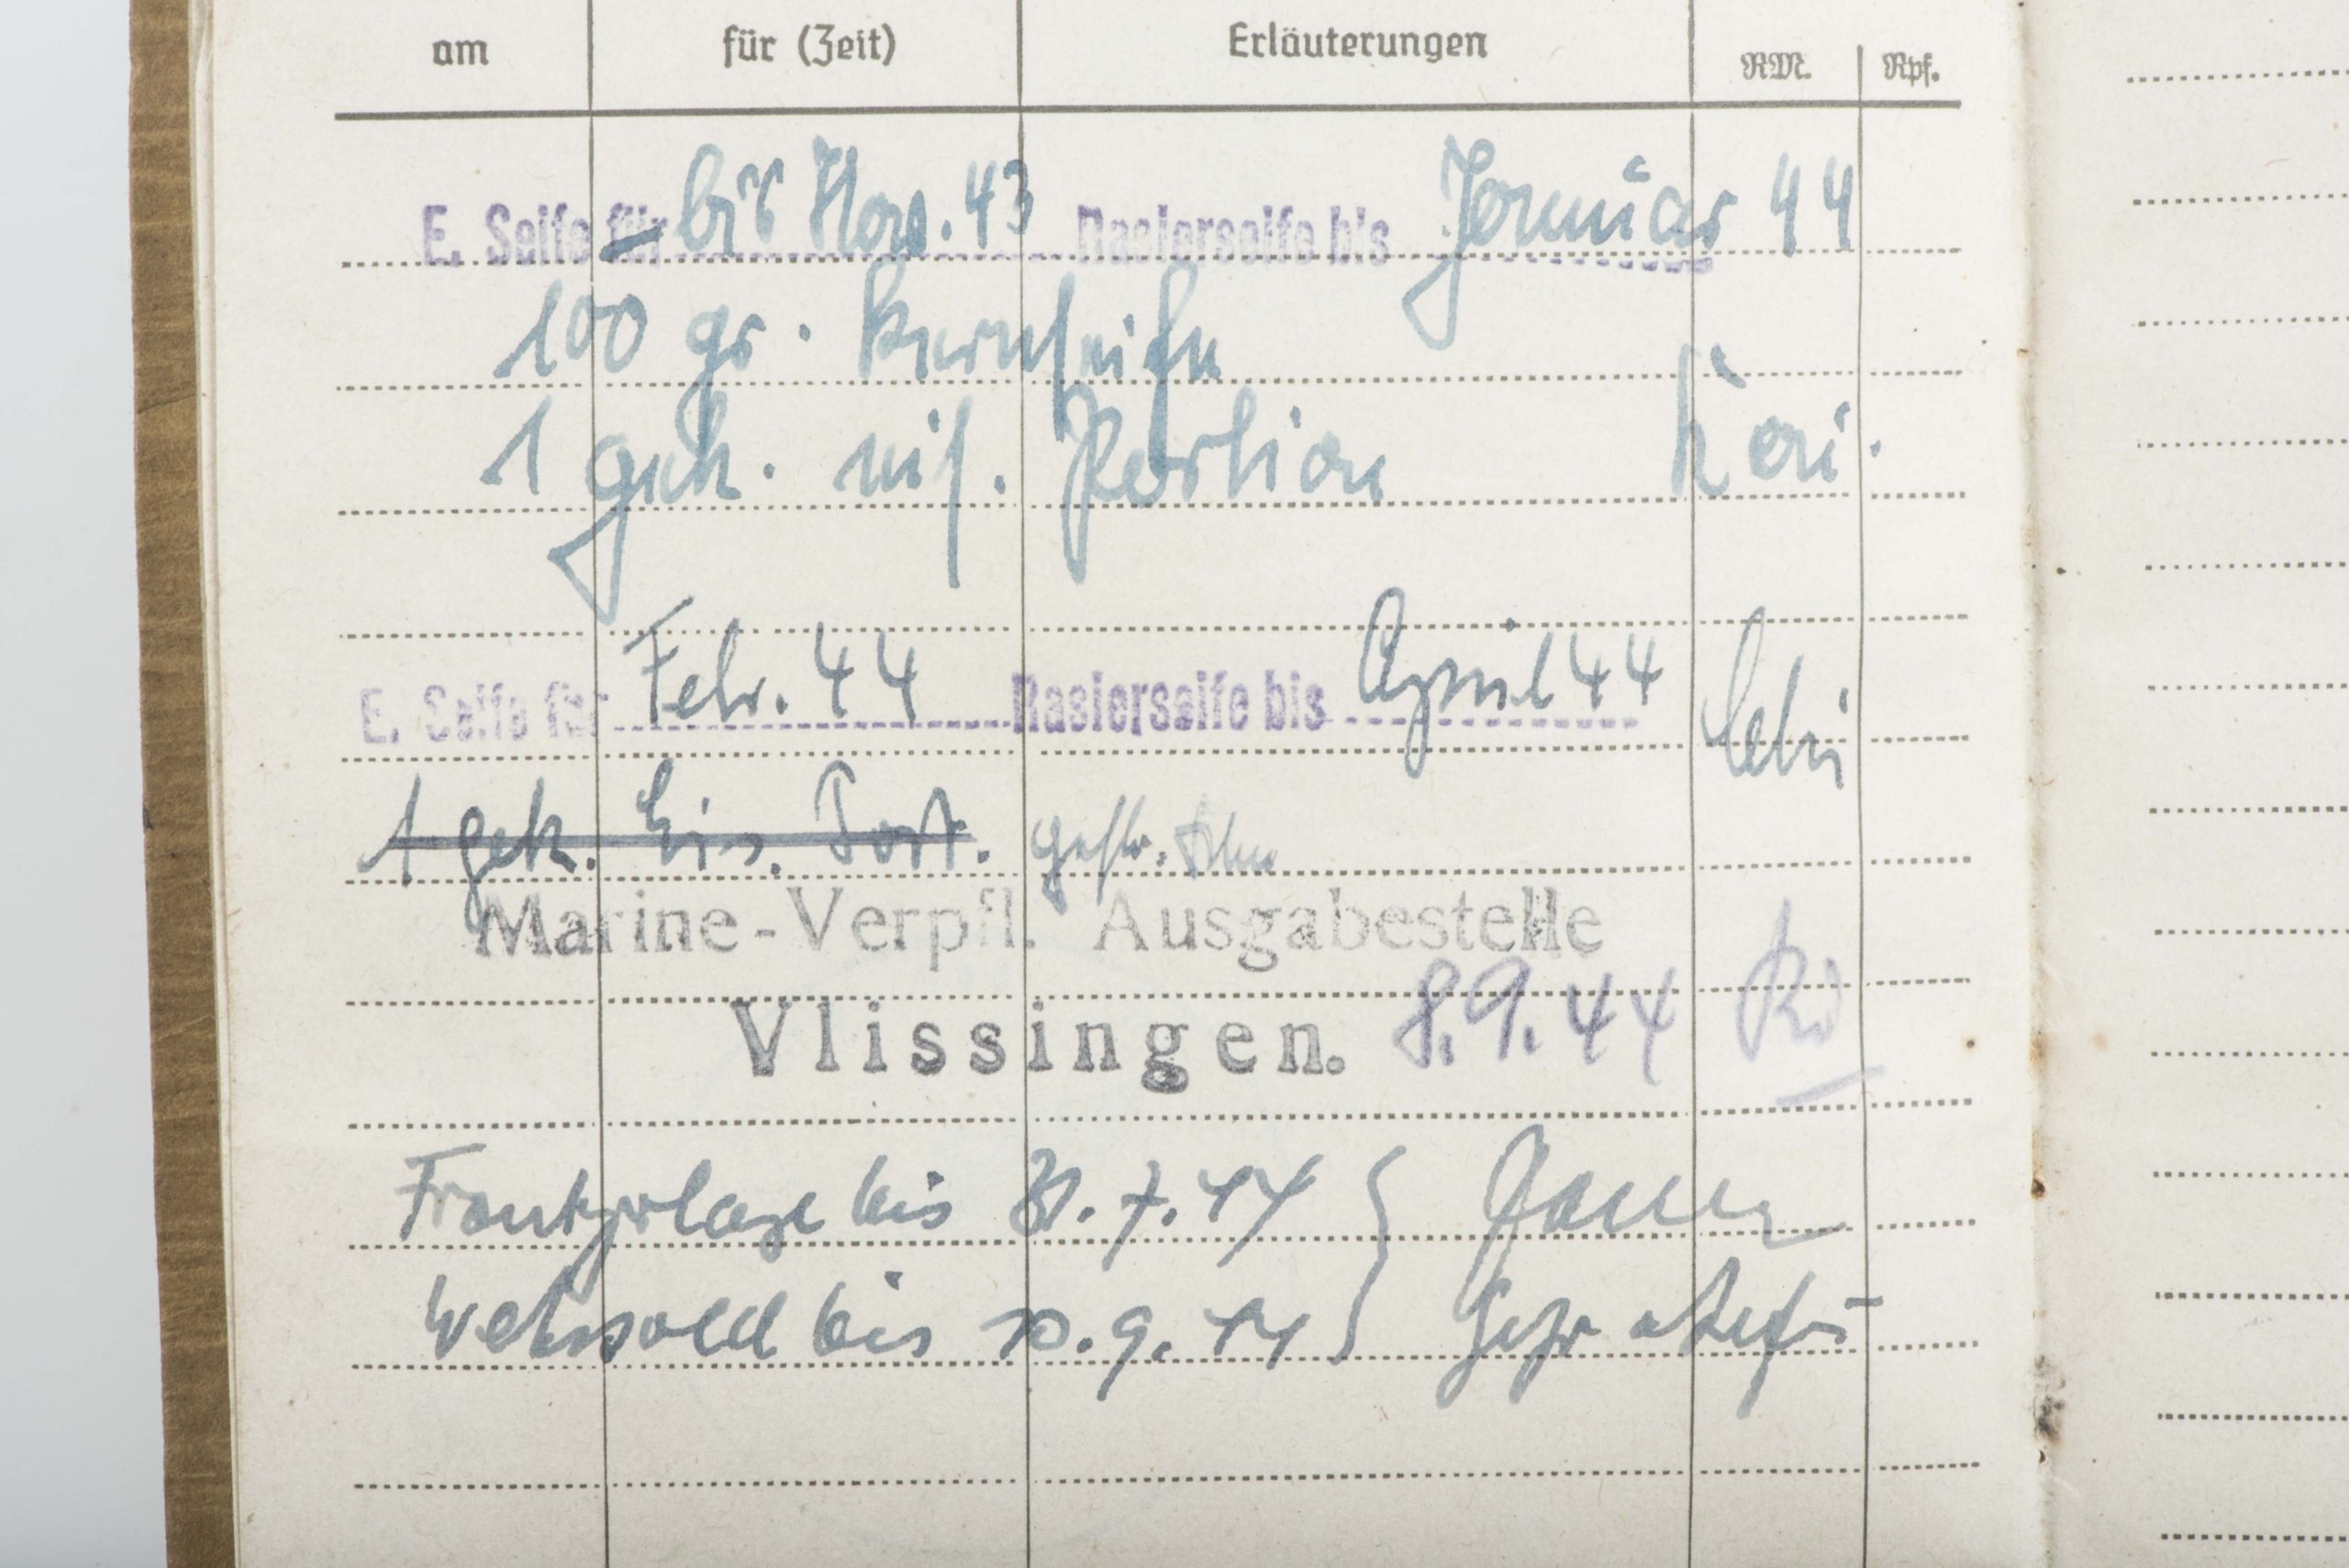 am für (Zeit) Erläuterungen RM. Rpf.
E. Seife für bis Nov. 43 Rasierseife bis Januar 44
100 gr. Kernseife
1 gek. eis. Portion
E. Seife für Febr. 44 Rasierseife bis April 44
1 gek. Eis. Port. gestr.
Marine-Verpfl. Ausgabestelle
Vlissingen. 8.9.44
Frontzulage bis 31.7.44 }
Wehrsold bis 30.9.44 }